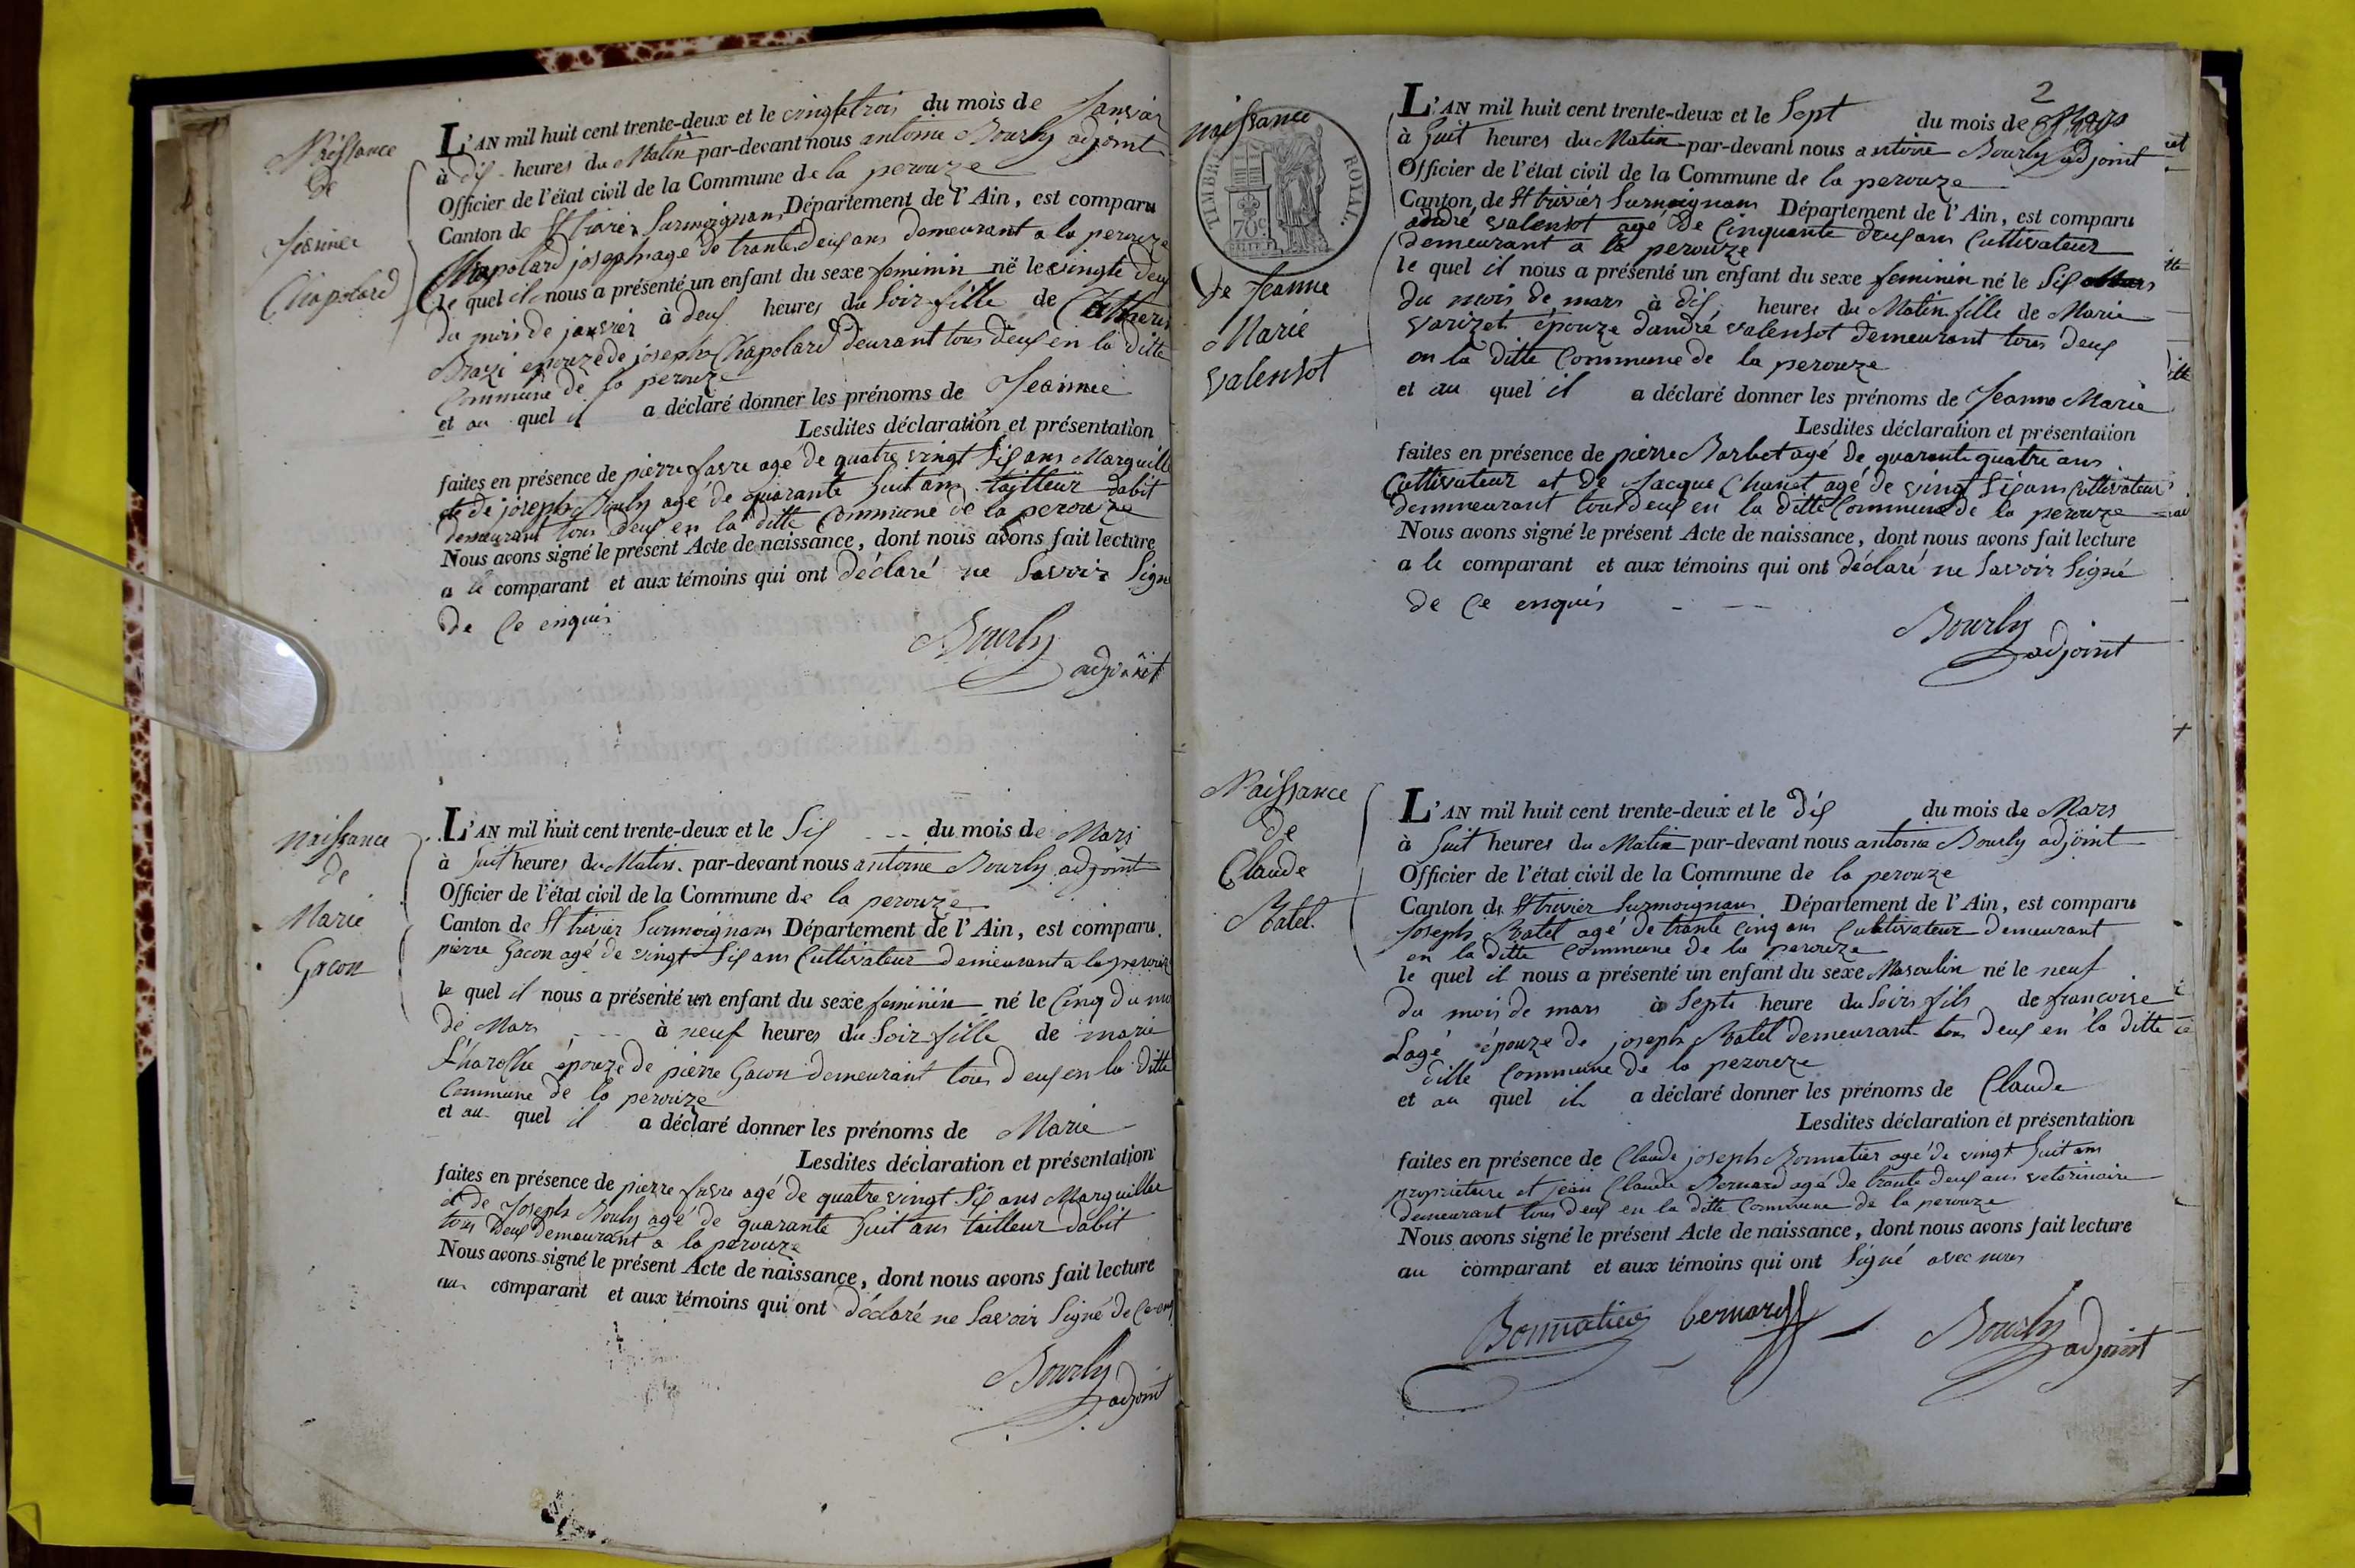 Naissance
de
Jeannee
Chapolard
L'AN mil huit cent trente-deux et le vingt trois du mois de Janvier
à dis heures du Matin par-devant nous antoine Bourly adjoint
Officier de l'état civil de la Commune de la perouze
Canton de St trivier Surmoignans Département de l'Ain, est comparu
Chapolard joseph agé de trante deux ans demeurant a la perouze
le quel il nous a présenté un enfant du sexe feminin né le vingte deux
du mois de janvier à deux heures du Soir fille de
Brazi epouze de joseph Chapolard deurant tous deux en la ditte
Commune de la perouze
et au quel il a déclaré donner les prénoms de Jeannee
Lesdites déclaration et présentation
faites en présence de pierre favre agé de quatre vingt Six ans Marguille
et de joseph Bouly agé de quarante huit ans tailleur dabit
demeurant tous deux en la ditte Commune de la perouze
Nous avons signé le présent Acte de naissance, dont nous avons fait lecture
a le comparant et aux témoins qui ont déclaré ne Savoir Signé
de Ce enquis
Bourly
adjoint
naissance
de
Marie
Gacon
L'AN mil huit cent trente-deux et le Six du mois de Mars
à huit heures du Matin par-devant nous antoine Bourly adjoint
Officier de l'état civil de la Commune de la perouze
Canton de St trivier Surmoignans Département de l'Ain, est comparu
pierre Gacon agé de vingt Six ans Cultivateur demeurant a la perouze
le quel il nous a présenté un enfant du sexe feminin né le Cinq du moi
de Mars à neuf heures du Soir fille de marie
épouze de pierre Gacon demeurant tous deux en la ditte
Commune de la perouze
et au quel il a déclaré donner les prénoms de Marie
Lesdites déclaration et présentation
faites en présence de pierre favre agé de quatre vingt Six ans Marguiller
et de Joseph Bouly agé de quarante huit ans tailleur dabit
tous deux demeurant a la perouze
Nous avons signé le présent Acte de naissance, dont nous avons fait lecture
au comparant et aux témoins qui ont déclaré ne Savoir Signé de Ce enq
Bourly
adjoint
2
naissance
TIMBRE ROYAL.
70c
de Jeanne
Marie
valensot
L'AN mil huit cent trente-deux et le Sept du mois de Mars
à huit heures du Matin par-devant nous antoine Bourly adjoint
Officier de l'état civil de la Commune de la perouze
Canton de St trivier Surmoignans Département de l'Ain, est comparu
andré valensot agé de Cinquante deux ans Cultivateur
demeurant a la perouze
le quel il nous a présenté un enfant du sexe feminin né le Six
du mois de mars à dix heures du Matin fille de Marie
varizet épouze dandré valensot demeurant tous deux
en la ditte Commune de la perouze
et au quel il a déclaré donner les prénoms de Jeanne Marie
Lesdites déclaration et présentation
faites en présence de pierre Barbet agé de quarante quatre ans
Cultivateur et de Jacque Chanet agé de vingt Six ans Cultivateur
demmeurant tous deux en la ditte Commune de la perouze
Nous avons signé le présent Acte de naissance, dont nous avons fait lecture
a le comparant et aux témoins qui ont déclaré ne Savoir Signé
de Ce enquis
Bourly
adjoint
Naissance
de
Claude
Batel
L'AN mil huit cent trente-deux et le dix du mois de Mars
à huit heures du Matin par-devant nous antoine Bourly adjoint
Officier de l'état civil de la Commune de la perouze
Canton de St trivier Surmoignans Département de l'Ain, est comparu
Joseph Batel agé de trante Cinq ans Cultivateur demeurant
en la ditte Commune de la perouze
le quel il nous a présenté un enfant du sexe Masculin né le neuf
du mois de mars à Septe heure du Soir fils de francoise
Lagé épouze de joseph Batel demeurant tous deux en la ditte
ditte Commune de la perouze
et au quel il a déclaré donner les prénoms de Claude
Lesdites déclaration et présentation
faites en présence de Claude joseph Bonnatier agé de vingt huit ans
proprieture et jean Claude Bernard agé de trante deux ans veterinaire
demeurant tous deux en la ditte Commune de la perouze
Nous avons signé le présent Acte de naissance, dont nous avons fait lecture
au comparant et aux témoins qui ont Signé avec nous
Bonnatier bernard Bourly
adjoint